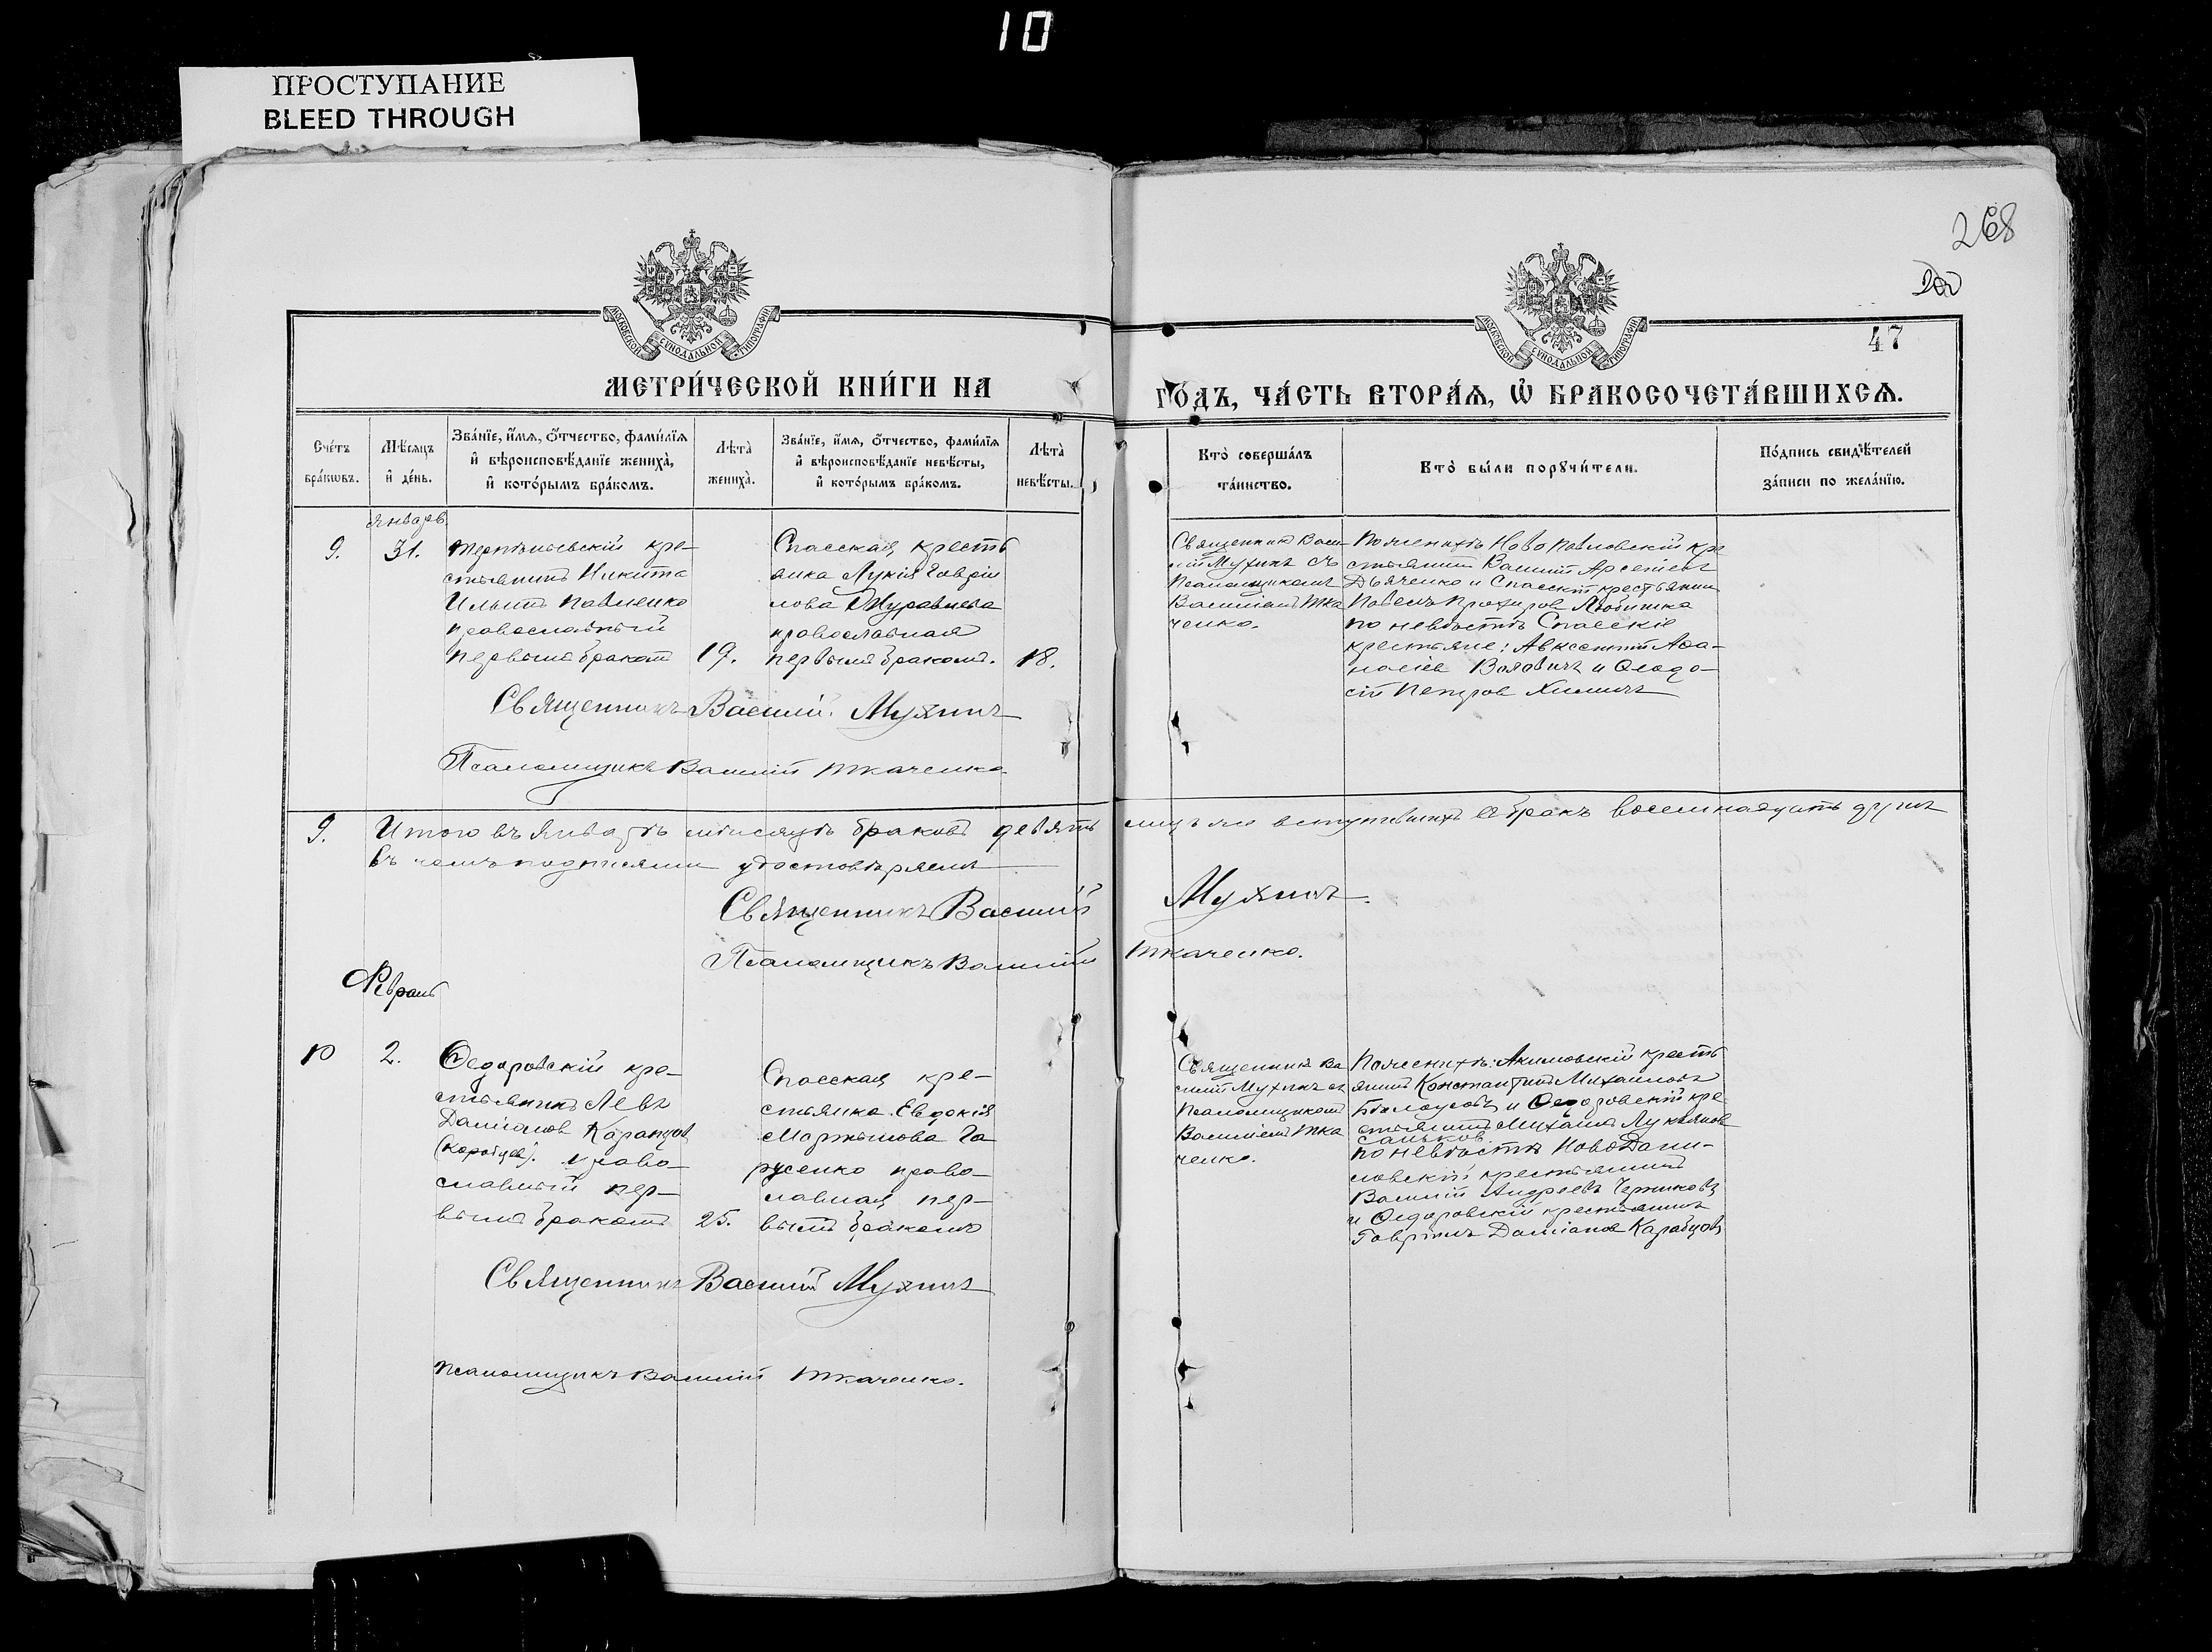 10
ПРОСТУПАНИЕ
BLEED THROUGH
268
47
МОСКОВСКОЙ СѴНОДАЛЬНОЙ ТИПОГРАФІИ
МОСКОВСКОЙ СѴНОДАЛЬНОЙ ТИПОГРАФІИ
МЕТРИ́ЧЕСКОЙ КНИ́ГИ НА
ГО́ДЪ, ЧА́СТЬ ВТОРА́Ѧ, Ѡ҆ БРАКОСОЧЕТА́ВШИХСѦ.
Сче́тъ бра́кѡвъ.
Мѣ́сяцъ и҆ де́нь.
Зва́нїе, и҆́мѧ, ѻ҆́тчество, фами́лїѧ
и҆ вѣроисповѣ́данїе жениха̀,
и҆ кото́рымъ бра́комъ.
Лѣта̀ жениха̀.
Зва́нїе, и҆́мѧ, ѻ҆́тчество, фами́лїѧ
и҆ вѣроисповѣ́данїе невѣ́сты,
и҆ кото́рымъ бра́комъ.
Лѣта̀ невѣ́сты.
Кто̀ соверша́лъ
та́инство.
Кто̀ бы́ли порꙋчи́тели.
По́дпись свидѣ́телей
за́писи по жела́нїю.
Январь
9.
31.
кре-
стьянинъ Никита
Ильинъ Павленко
православный
первымъ бракомъ
19.
Спасская кресть
янка Лукія Гаврiи
лова Журавлева
православная
первымъ бракомъ.
18.
Священникъ Васи-
лій Мухинъ съ
Псаломщикомъ
Василіемъ Тка
ченко.
По женихѣ Ново Павловскій кре
стьянинъ Василій Арсеніевъ
Дьяченко и Спасскій крестьянинъ
Павелъ Прохоров
по невѣстѣ Спасскіе
крестьяне: Авксентій Аѳа-
насіев и Ѳеодо-
сій Петров Химичъ
Священникъ Василій Мухинъ
Псаломщикъ Василій Ткаченко
9. Итого въ Январѣ мѣсяцѣ браковъ девять лицъ же вступившихъ въ бракъ восемнадцать душъ
въ чемъ подписями удостовѣряемъ
Священникъ Василій Мухинъ.
Псаломщикъ Василій Ткаченко.
Февраль
10
2.
Ѳедоровскій кре-
стьянинъ Левъ
Даміанов Карапцов
право-
славный пер-
вымъ бракомъ
25.
Спасская кре-
стьянка Евдокія
Мартынова Га
русенко право-
славная пер-
вымъ бракомъ
Священникъ Ва
силій Мухинъ съ
Псаломщикомъ
Василіемъ Тка
ченко.
По женихѣ: Акимовскій кресть
янинъ Константинъ Михаиловъ
Бѣлоусовъ и Ѳедоровскій кре
стьянинъ Михаилъ Лукьянов
Саньков.
по невѣстѣ Ново Дани-
ловскій крестьянинъ
Василій Андреевъ
и Ѳедоровскій крестьянинъ
Гавріилъ Даміанов Карабцовъ
Священникъ Василій Мухинъ
Псаломщикъ Василій Ткаченко.